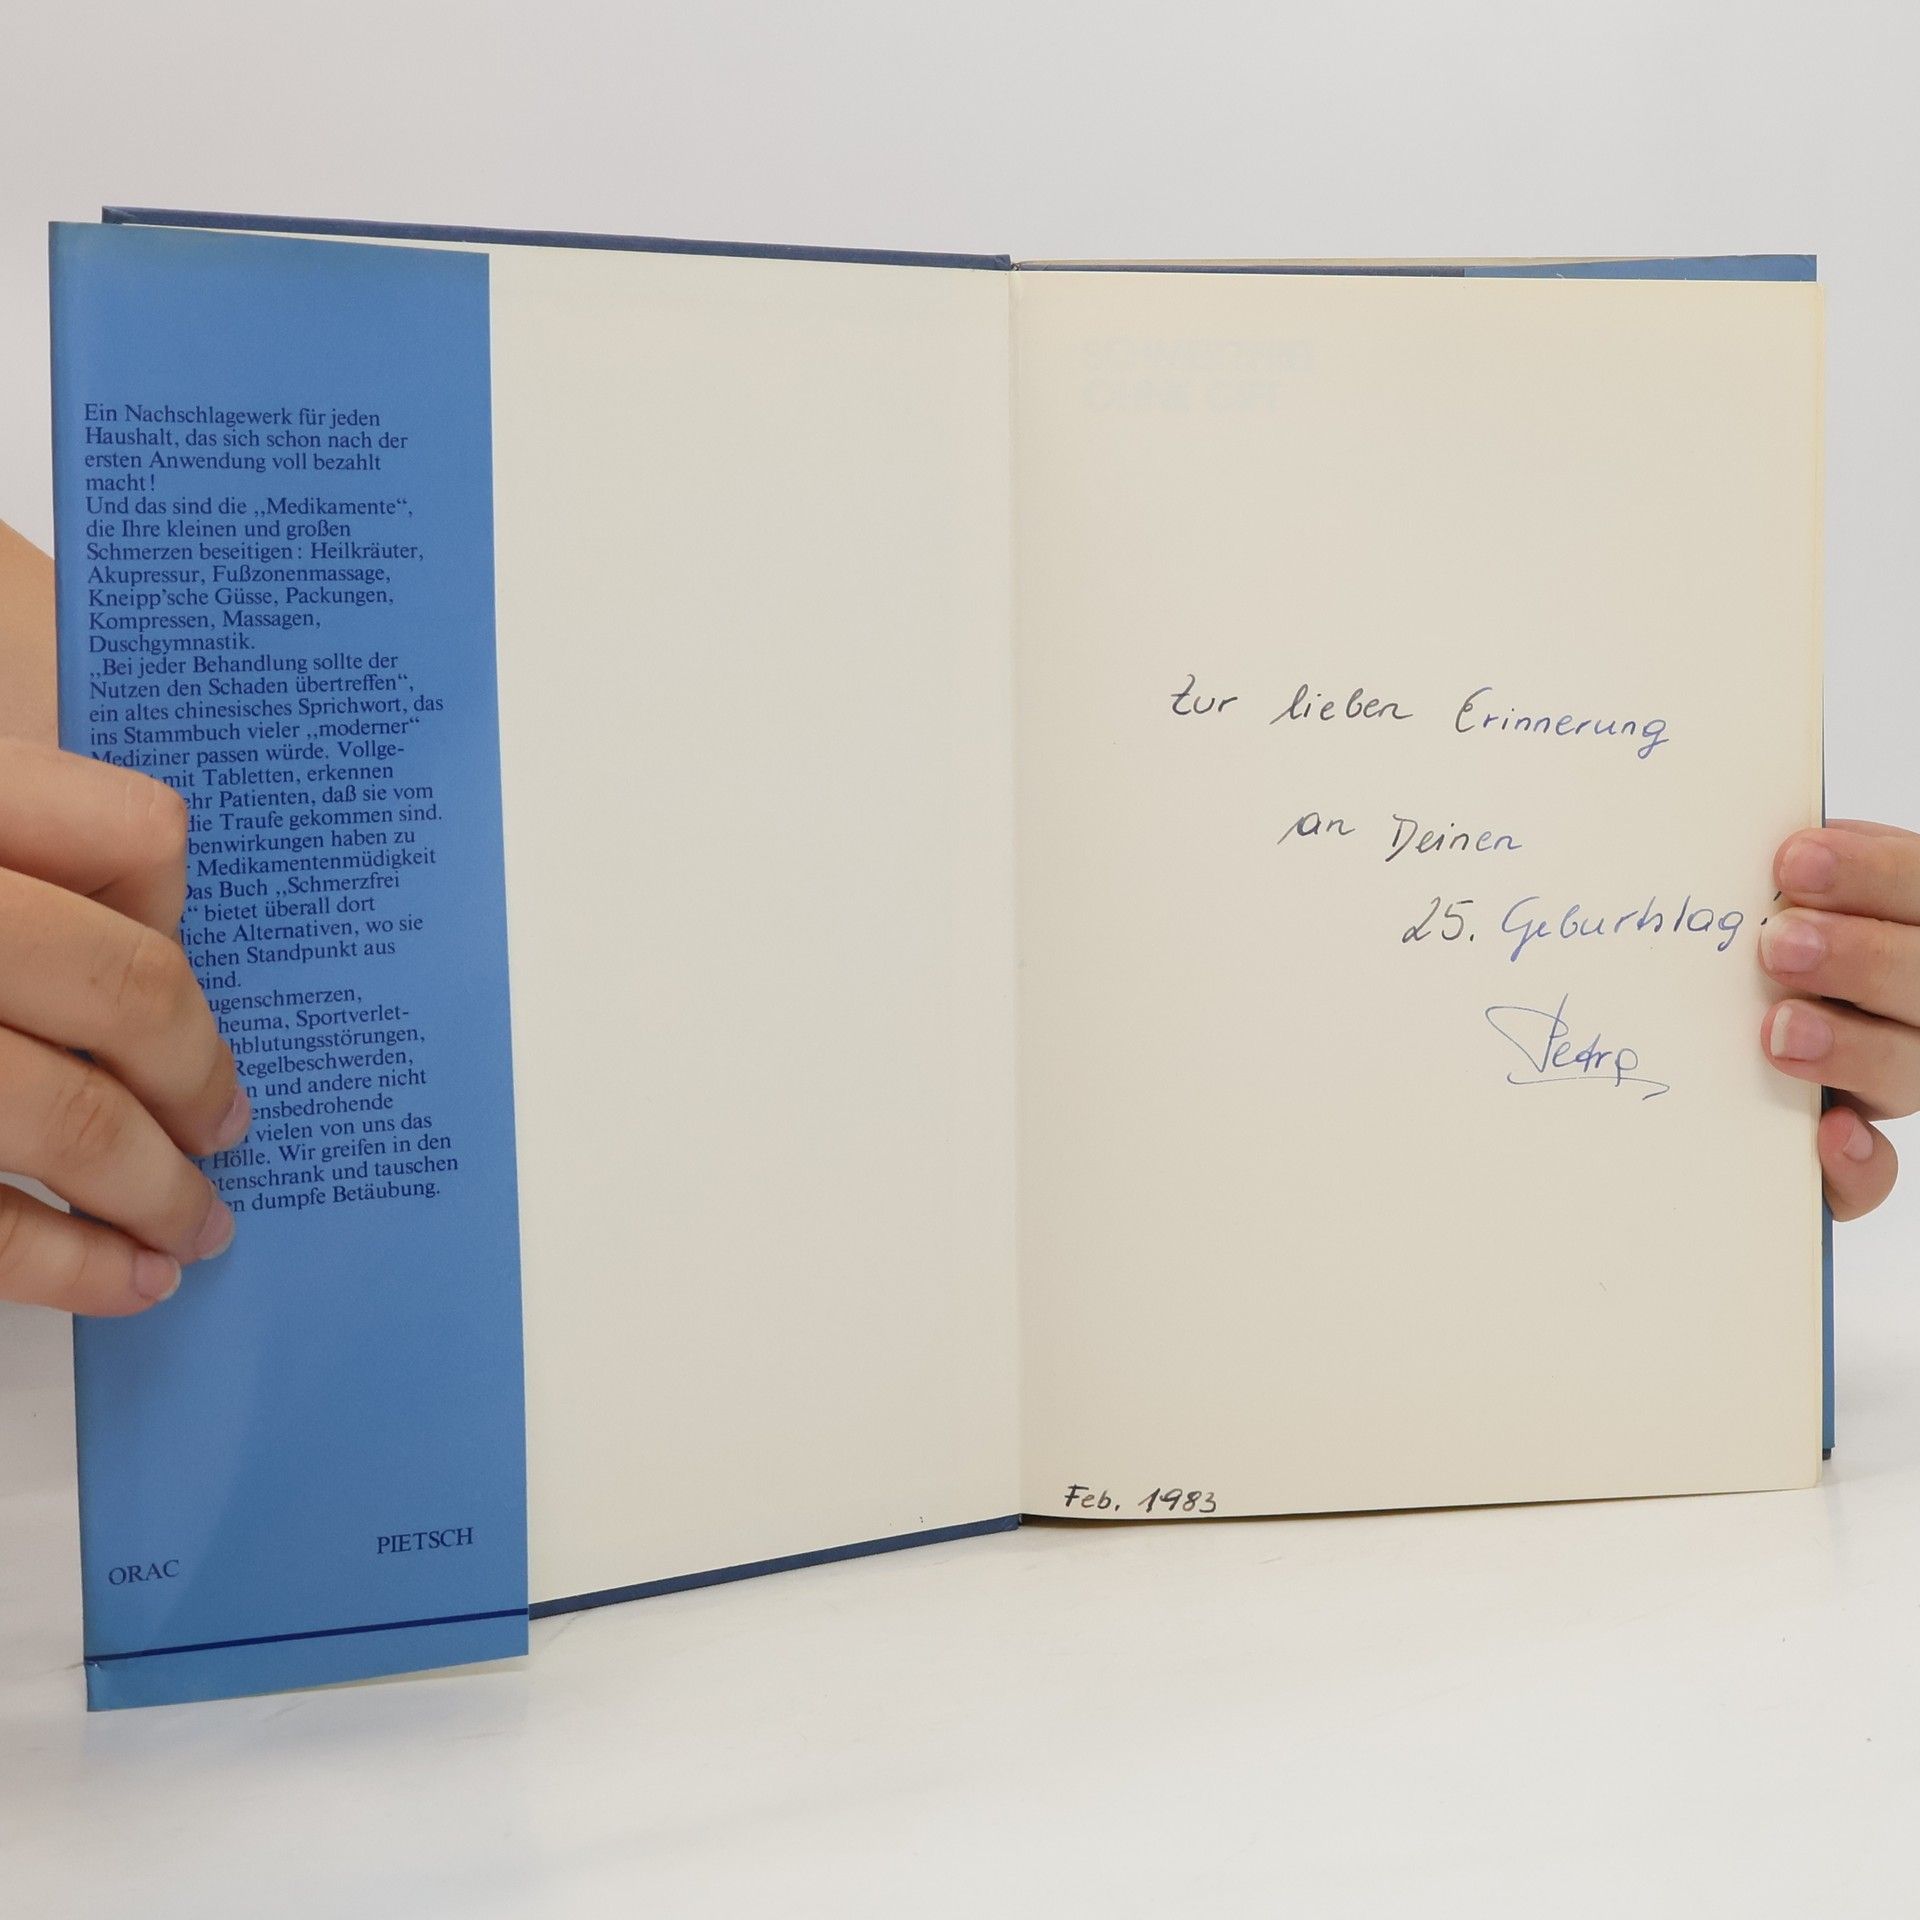 Ein Nachschlagewerk für jeden
Haushalt, das sich schon nach der
ersten Anwendung voll bezahlt
macht!
Und das sind die „Medikamente“,
die Ihre kleinen und großen
Schmerzen beseitigen: Heilkräuter,
Akupressur, Fußzonenmassage,
Kneipp’sche Güsse, Packungen,
Kompressen, Massagen,
Duschgymnastik.
„Bei jeder Behandlung sollte der
Nutzen den Schaden übertreffen“,
ein altes chinesisches Sprichwort, das
ins Stammbuch vieler „moderner“
Mediziner passen würde. Vollge-
mit Tabletten, erkennen
ehr Patienten, daß sie vom
die Traufe gekommen sind.
benwirkungen haben zu
Medikamentenmüdigkeit
Das Buch „Schmerzfrei
“ bietet überall dort
liche Alternativen, wo sie
ichen Standpunkt aus
sind.
ugenschmerzen,
heuma, Sportverlet-
hblutungsstörungen,
Regelbeschwerden,
n und andere nicht
ensbedrohende
vielen von uns das
r Hölle. Wir greifen in den
tenschrank und tauschen
en dumpfe Betäubung.
ORAC
PIETSCH
SCHMERZFREI
OHNE GIFT
Zur lieben Erinnerung
an Deinen
25. Geburtstag!
Petra
Feb. 1983